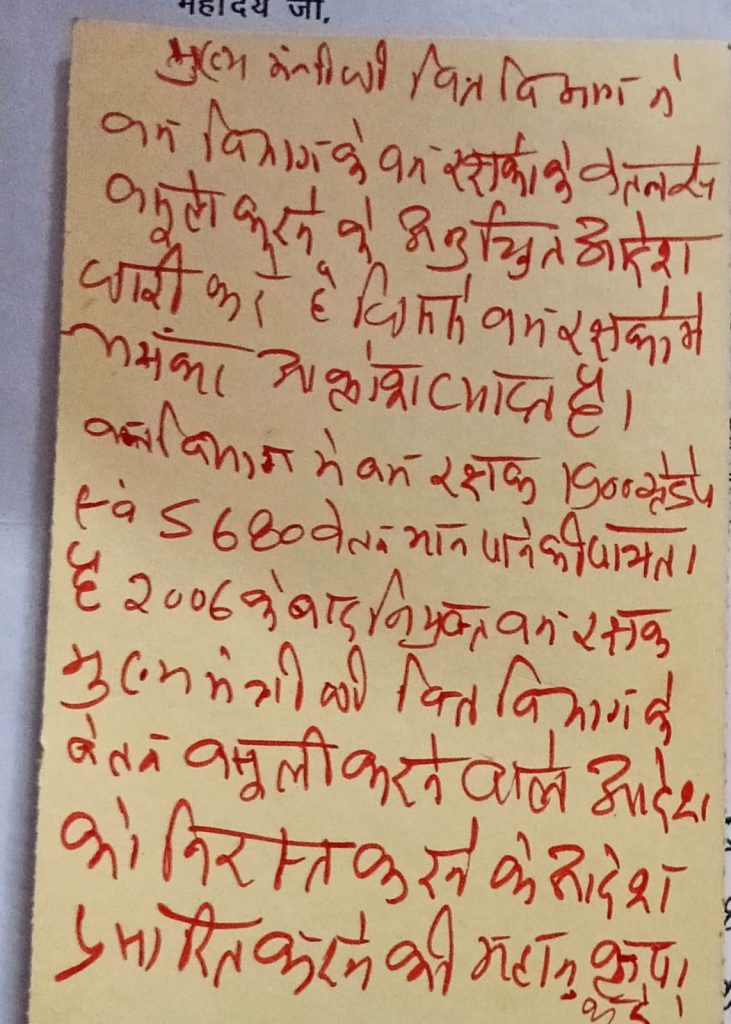 महोदय जी,
मुख्य मंत्री जी वित्त विभाग ने
वन विभाग के वन रक्षको के वेतन से
वसूली करने के अनुचित आदेश
जारी करे है जिससे वन रक्षको मे
भयंकर आक्रोश व्याप्त है।
वन विभाग मे वन रक्षक 1900 ग्रेड पे
एवं 5680 वेतन मान पाने की पात्रता
है 2006 के बाद नियुक्त वन रक्षक
मुख्य मंत्री जी वित्त विभाग के
वेतन वसूली करने वाले आदेश
को निरस्त करने के आदेश
प्रसारित करने की महान कृपा
करे।